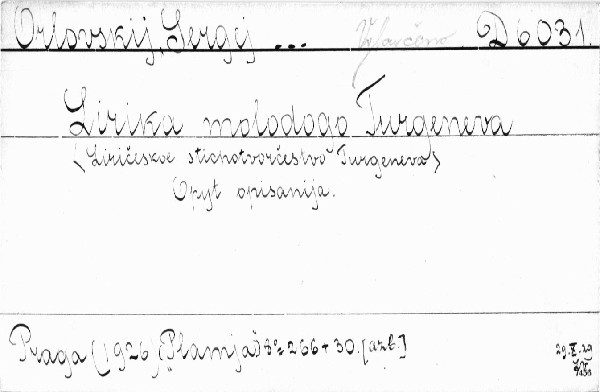 Orlovskij, Sergej ... Vyřazeno D 6031.
Lirika molodogo Turgeneva
(Liričeskoe stichotvorčestvo Turgeneva)
Opyt opisanija.
Praga (1926) Plamja 8° 266 + 30. [azb.]
29.X.29